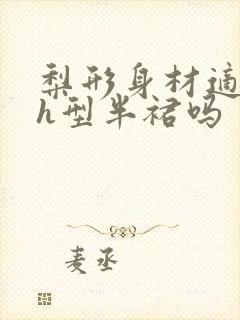 梨形身材适
h型半裙吗
麦丞